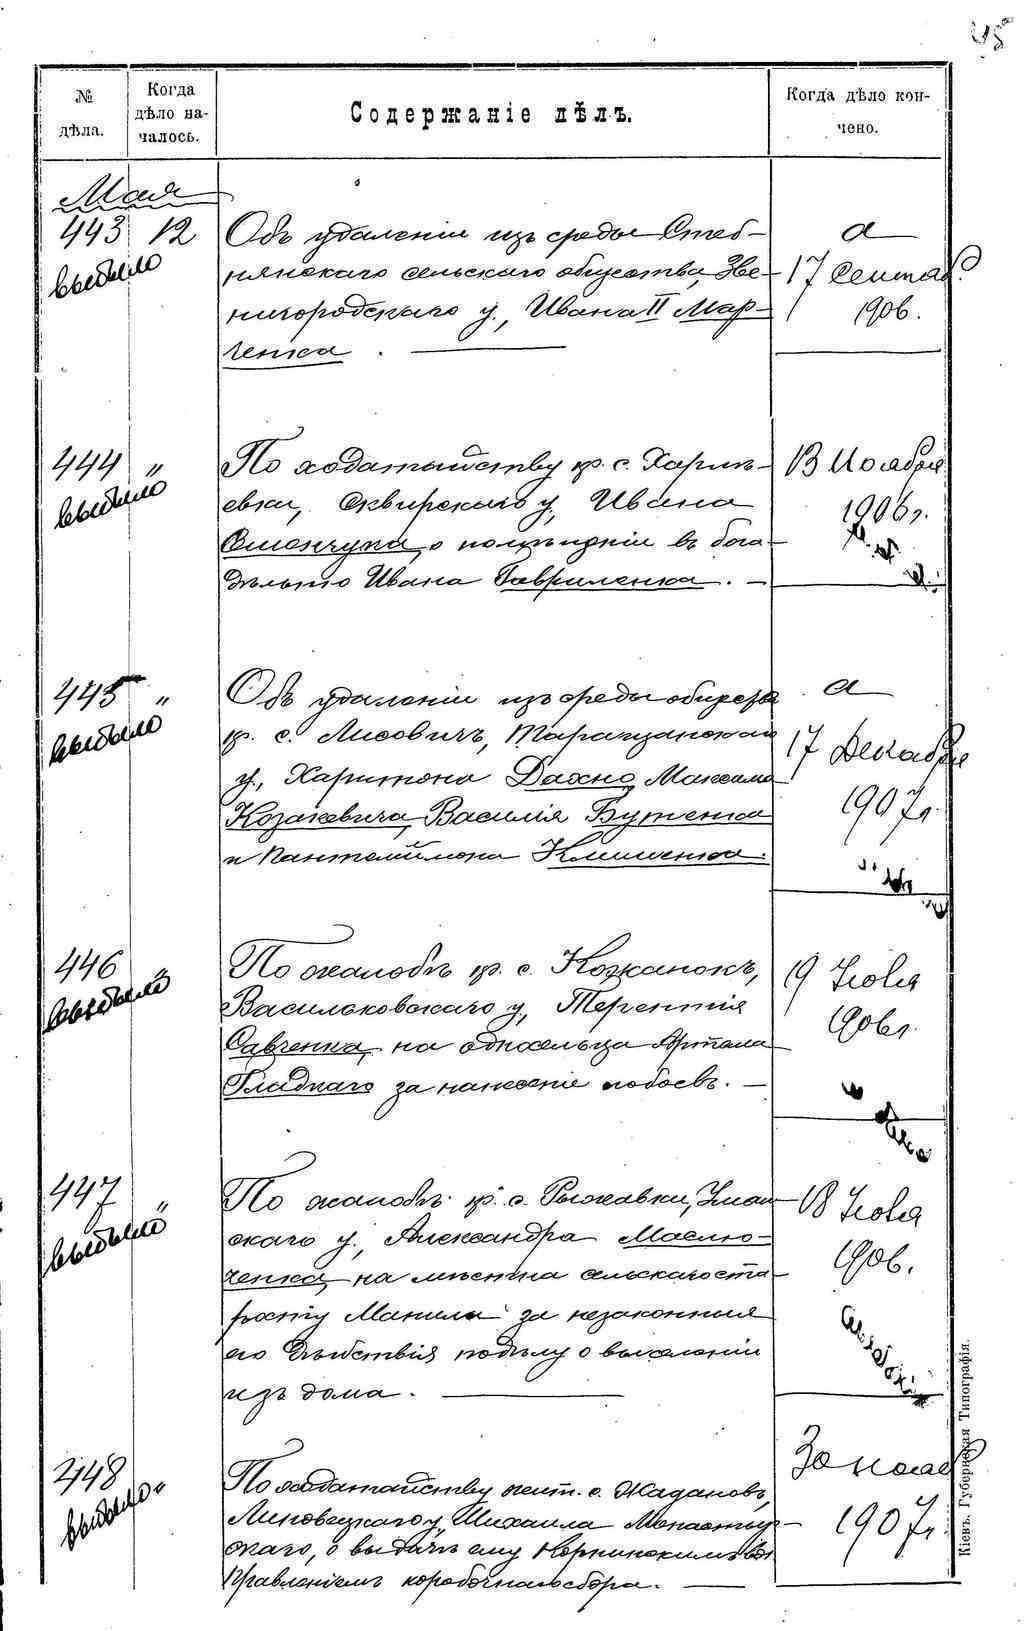 45
№ дѣла.
Когда дѣло началось.
Содержаніе дѣлъ.
Когда дѣло кончено.
Мая
443 12
выбыло
Объ удаленіи изъ среды Стеб-
нянскаго сельскаго общества, Зве-
нигородскаго у., Ивана II Мар-
ченка.
а
17 Сентяб.
1906.
444 "
выбыло
По ходатайству кр. с. Харлѣ-
евки, Сквирскаго у., Ивана
о помѣщеніи въ бога-
дѣльню Ивана Гавриленка. —
13 Ноября
1906 г.
445 "
выбыло
Объ удаленіи изъ среды общества
кр. с. Лисовичъ, Таращанскаго
у., Харитона Дахно, Максима
Козакевича, Василія Бутенка
и Пантелеймона Клименка.
а
17 Декабря
1907 г.
446 "
выбыло
По жалобѣ кр. с. Кожанокъ,
Васильковскаго у., Терентія
Савченка, на односельца Артема
Гладкаго за нанесеніе побоевъ. —
19 Іюля
1906 г.
447 "
выбыло
По жалобѣ кр. с. Рыжавки, Уман-
скаго у., Александра Маслю-
ченка, на мѣстна сельскаго ста-
росту за незаконныя
его дѣйствія по дѣлу о выселеніи
изъ дома.
18 Іюля
1906.
448 "
выбыло
По ходатайству жит. с. Жадановъ,
Липовецкаго у., Михаила Монастыр-
скаго, о выдачѣ ему Корнинскимъ вол
Правленіемъ коробочнаго сбора. —
30 нояб
1907 г.
Кіевъ. Губернская Типографія.